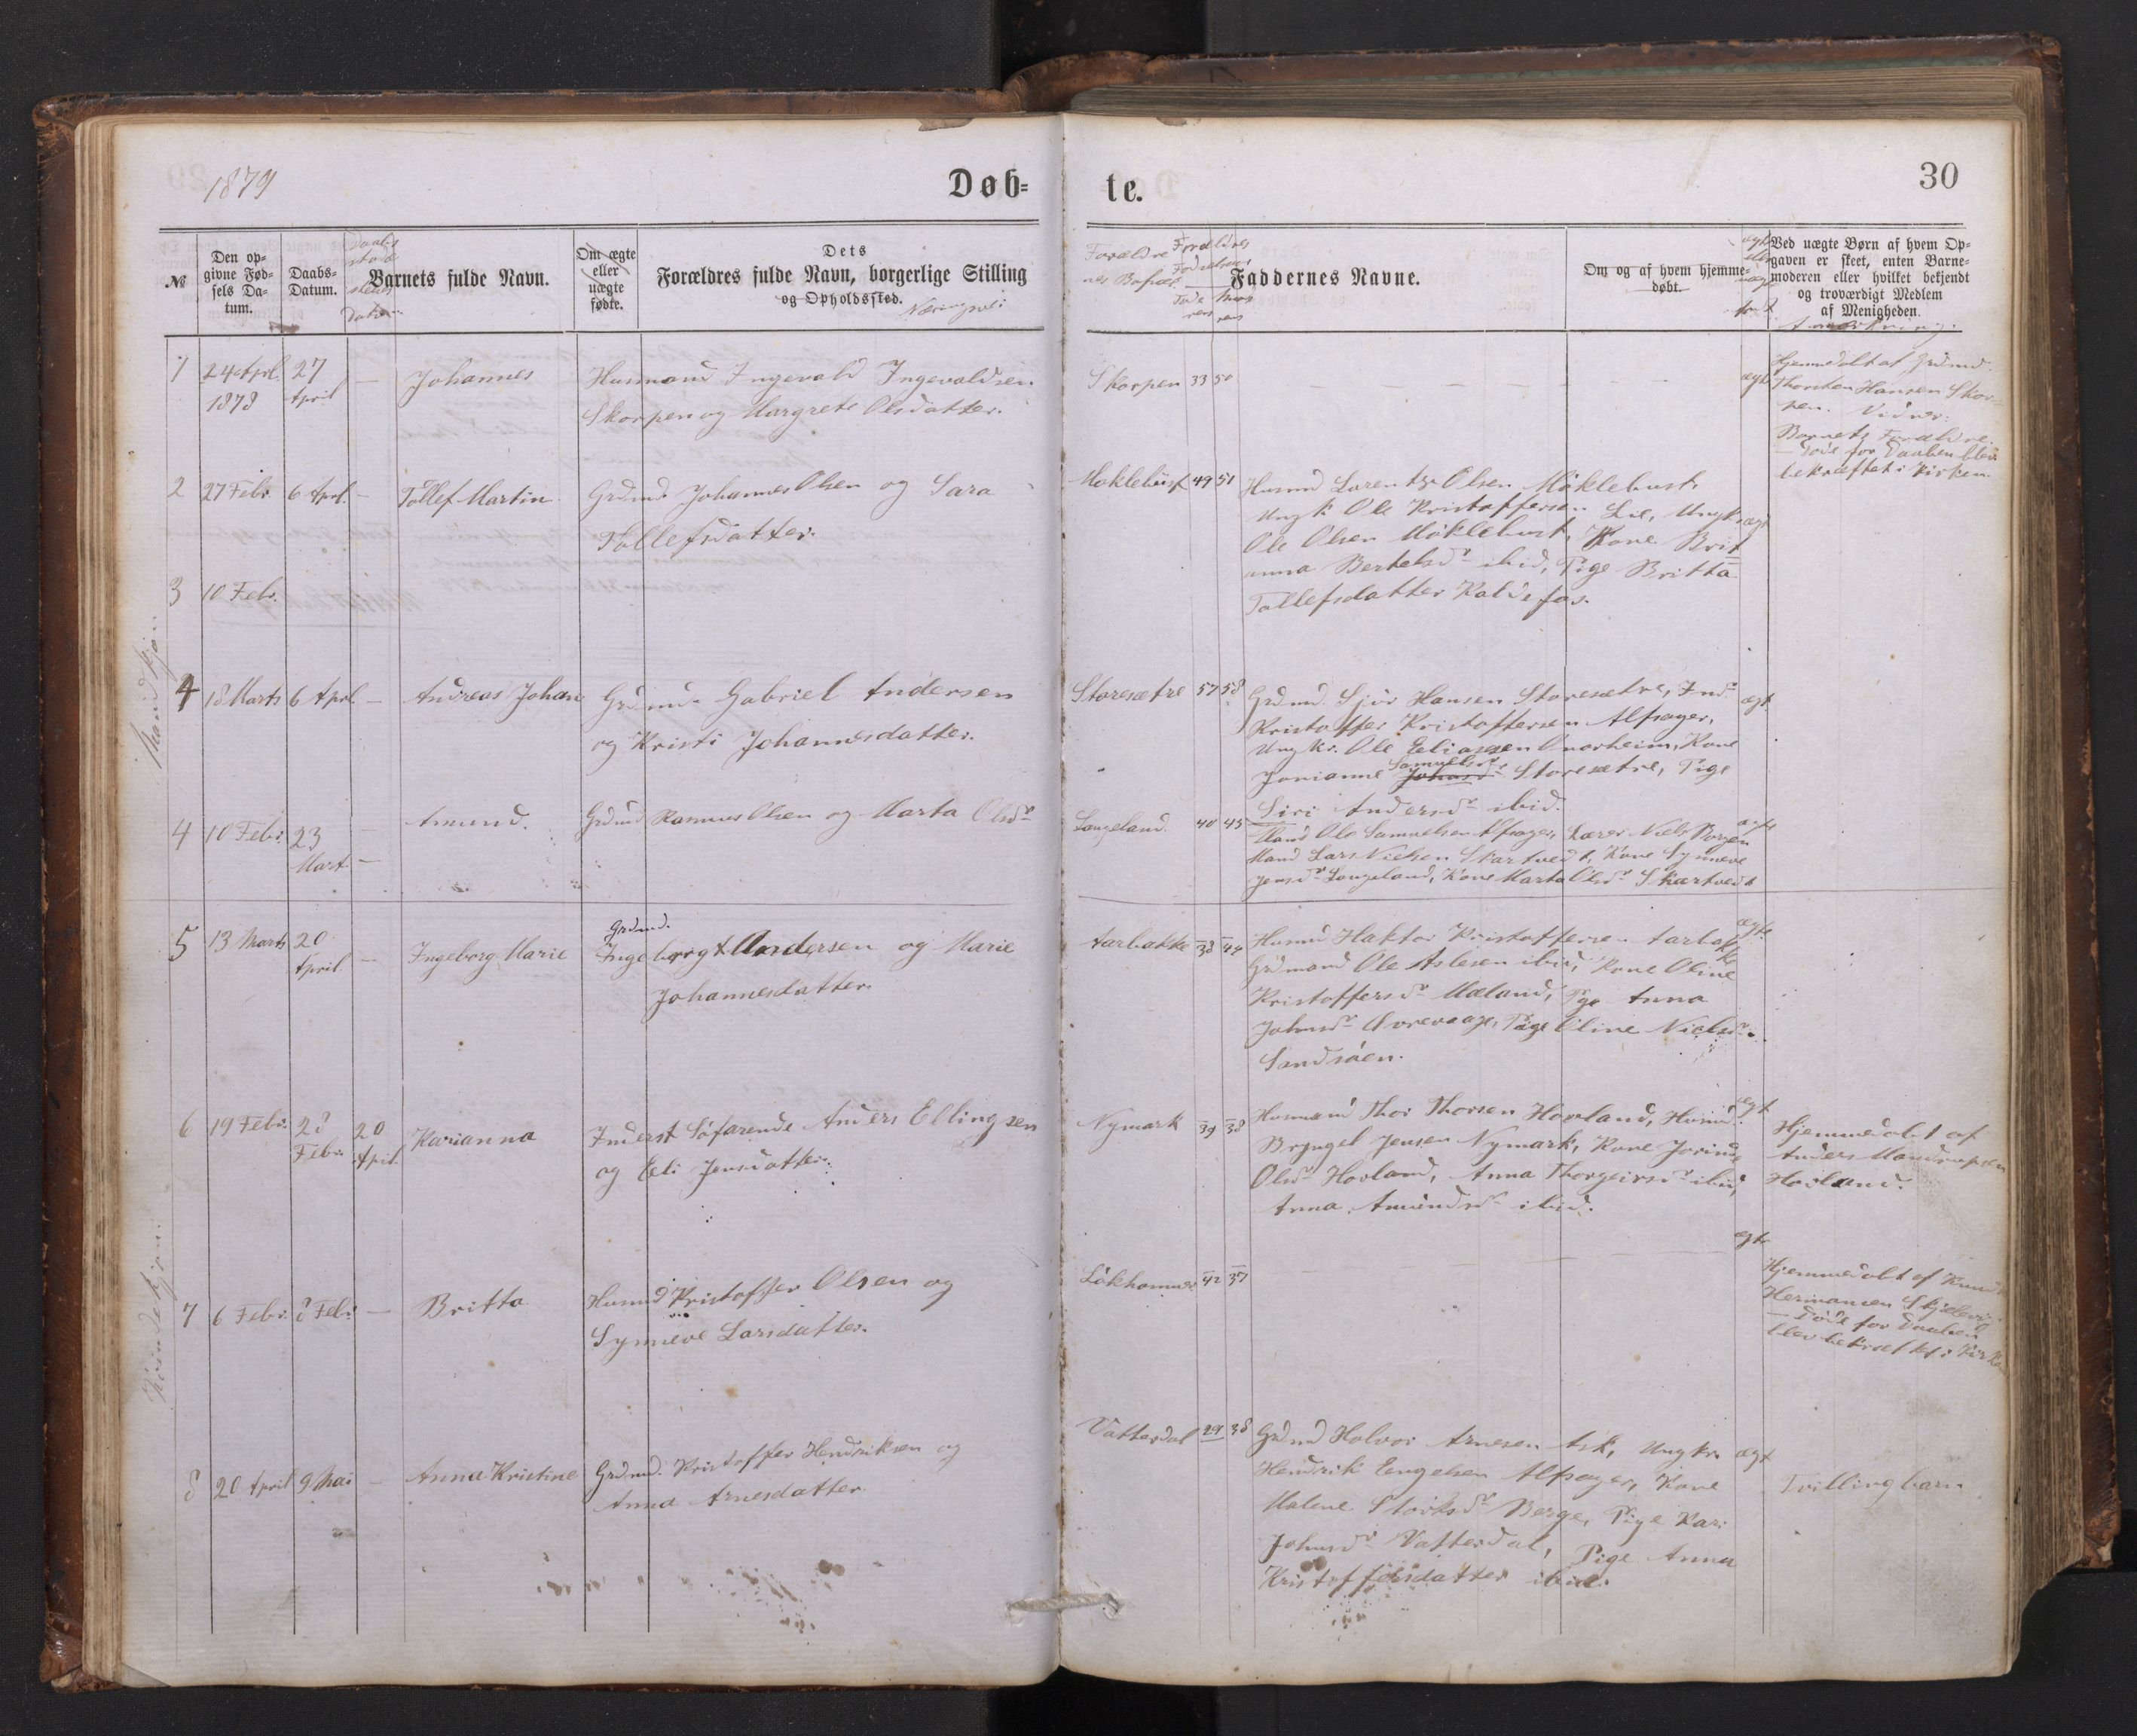 1879
Døb-
te.
30
№
Den op-
givne Fød-
sels Da-
tum.
Daabs-
Datum.
Barnets fulde Navn.
Om ægte
eller
uægte
fødte.
Dets
Forældres fulde Navn, borgerlige Stilling
og Opholdssted.
Næringsvei
Foræld
Forældres
Fødselsaar
Fade
rens
Mod
rens
Faddernes Navne.
Om og af hvem hjemme-
døbt.
Ved uægte Børn af hvem Op-
gaven er skeet, enten Barne-
moderen eller hvilket bekjendt
og troværdigt Medlem
af Menigheden.
Anmærkning.
Mandkjøn
1
24 Aprl.
1878
27
April
—
Johannes
Husmand Ingevald Ingevaldsen
Skorpen og Margrete Olsdatter.
Skorpen
33
50
ægt
Hjemmedøbt af Grdmd.
Thorsten Hansen Skor-
pen. Vidner.
Barnets Forældre.
— Døde før Daaben blev
bekræftet i Kirken.
2
27 Febr.
6 Aprl.
—
Tollef Martin
Grdmd. Johannes Olsen og Sara
Tollefsdatter.
Møklebust
49
51
Husmd Larents Olsen Møklebust,
Ungk Ole Kristoffersen Lie, Ungk
Ole Olsen Møklebust, Kone Brit
anna Bertelsdr ibid, Pige Britta
Tollefsdatter Kaldefos.
ægt
3
10 Febr.
4
18 Marts
6 Aprl.
—
Andreas Johan
Grdmd. Gabriel Andersen
og Kristi Johannesdatter.
Storesætre
57
58
Grdmd Sjur Hansen Storesætre, Indr
Kristoffer Kristoffersen Alfsager,
Ungkr. Ole Eeliassen Onarheim, Kone
Samuelsdr
Jorianne Johnsdr Storesætre, Pige
Siri Andersdr ibid.
ægt
4
10 Febr.
23
Mart.
—
Amund.
Grdmd Rasmus Olsen og Marta Olsdr
Langeland
40
45
Mand Ole Samuelsen Alfsager, Lærer Niels Borgen
Mand Lars Nielsen Skartvedt, Kone Synneve
Jensdr Langeland, Kone Marta Olsdr Skartvedt
Kvindekjøn
5
13 Marts
20
April
—
Ingeborg Marie
Grdmd.
Ingebrigt Andersen og Marie
Johannesdatter.
Aarbakke
38
44
Husmd Haktor Kristoffersen Aarbakke
Grdmand Ole Aslesen ibid, Kone Oline
Kristoffersdr Mæland, Pge Anna
Johnsdr Ovrevaage, Pige Oline Nielsdr
Sandsøen.
ægte
6
19 Febr.
28
Febr.
20
April
Karianna
Inderst Søfarende Anders Ellingsen
og Eli Jensdatter.
Nymark
39
38
Husmand Thor Thorsen Hovland, Husmd.
Bryngel Jensen Nymark, Kone Jorinde
Olsdr Hovland, Anna Thorgeirsdr ibid,
Anna Amundsdr ibid.
ægt
Hjemmedøbt af
Anders Mandrupsen
Hovland.
7
6 Febr.
8 Febr
—
Britta
Husmd Kristoffer Olsen og
Synneve Larsdatter.
Løkhammer
42
37
ægt
Hjemmedøbt af Knud
Hermansen Skjelevig
— Døde før Daaben
blev bekræftet i Kirken
8
20 April
9 Mai
—
Anna Kristine
Grdmd. Kristoffer Hendriksen og
Anna Arnesdatter
Vatterdal
29
38
Grdmd Halvor Arnesen Ask, Ungkr.
Hendrik Eengelsen Alfsager, Kone
Malene Størksdr Berge, Pige Kari
Johnsdr Vatterdal, Pige Anna
Kristoffersdatter ibid.
ægt
Tvillingbarn